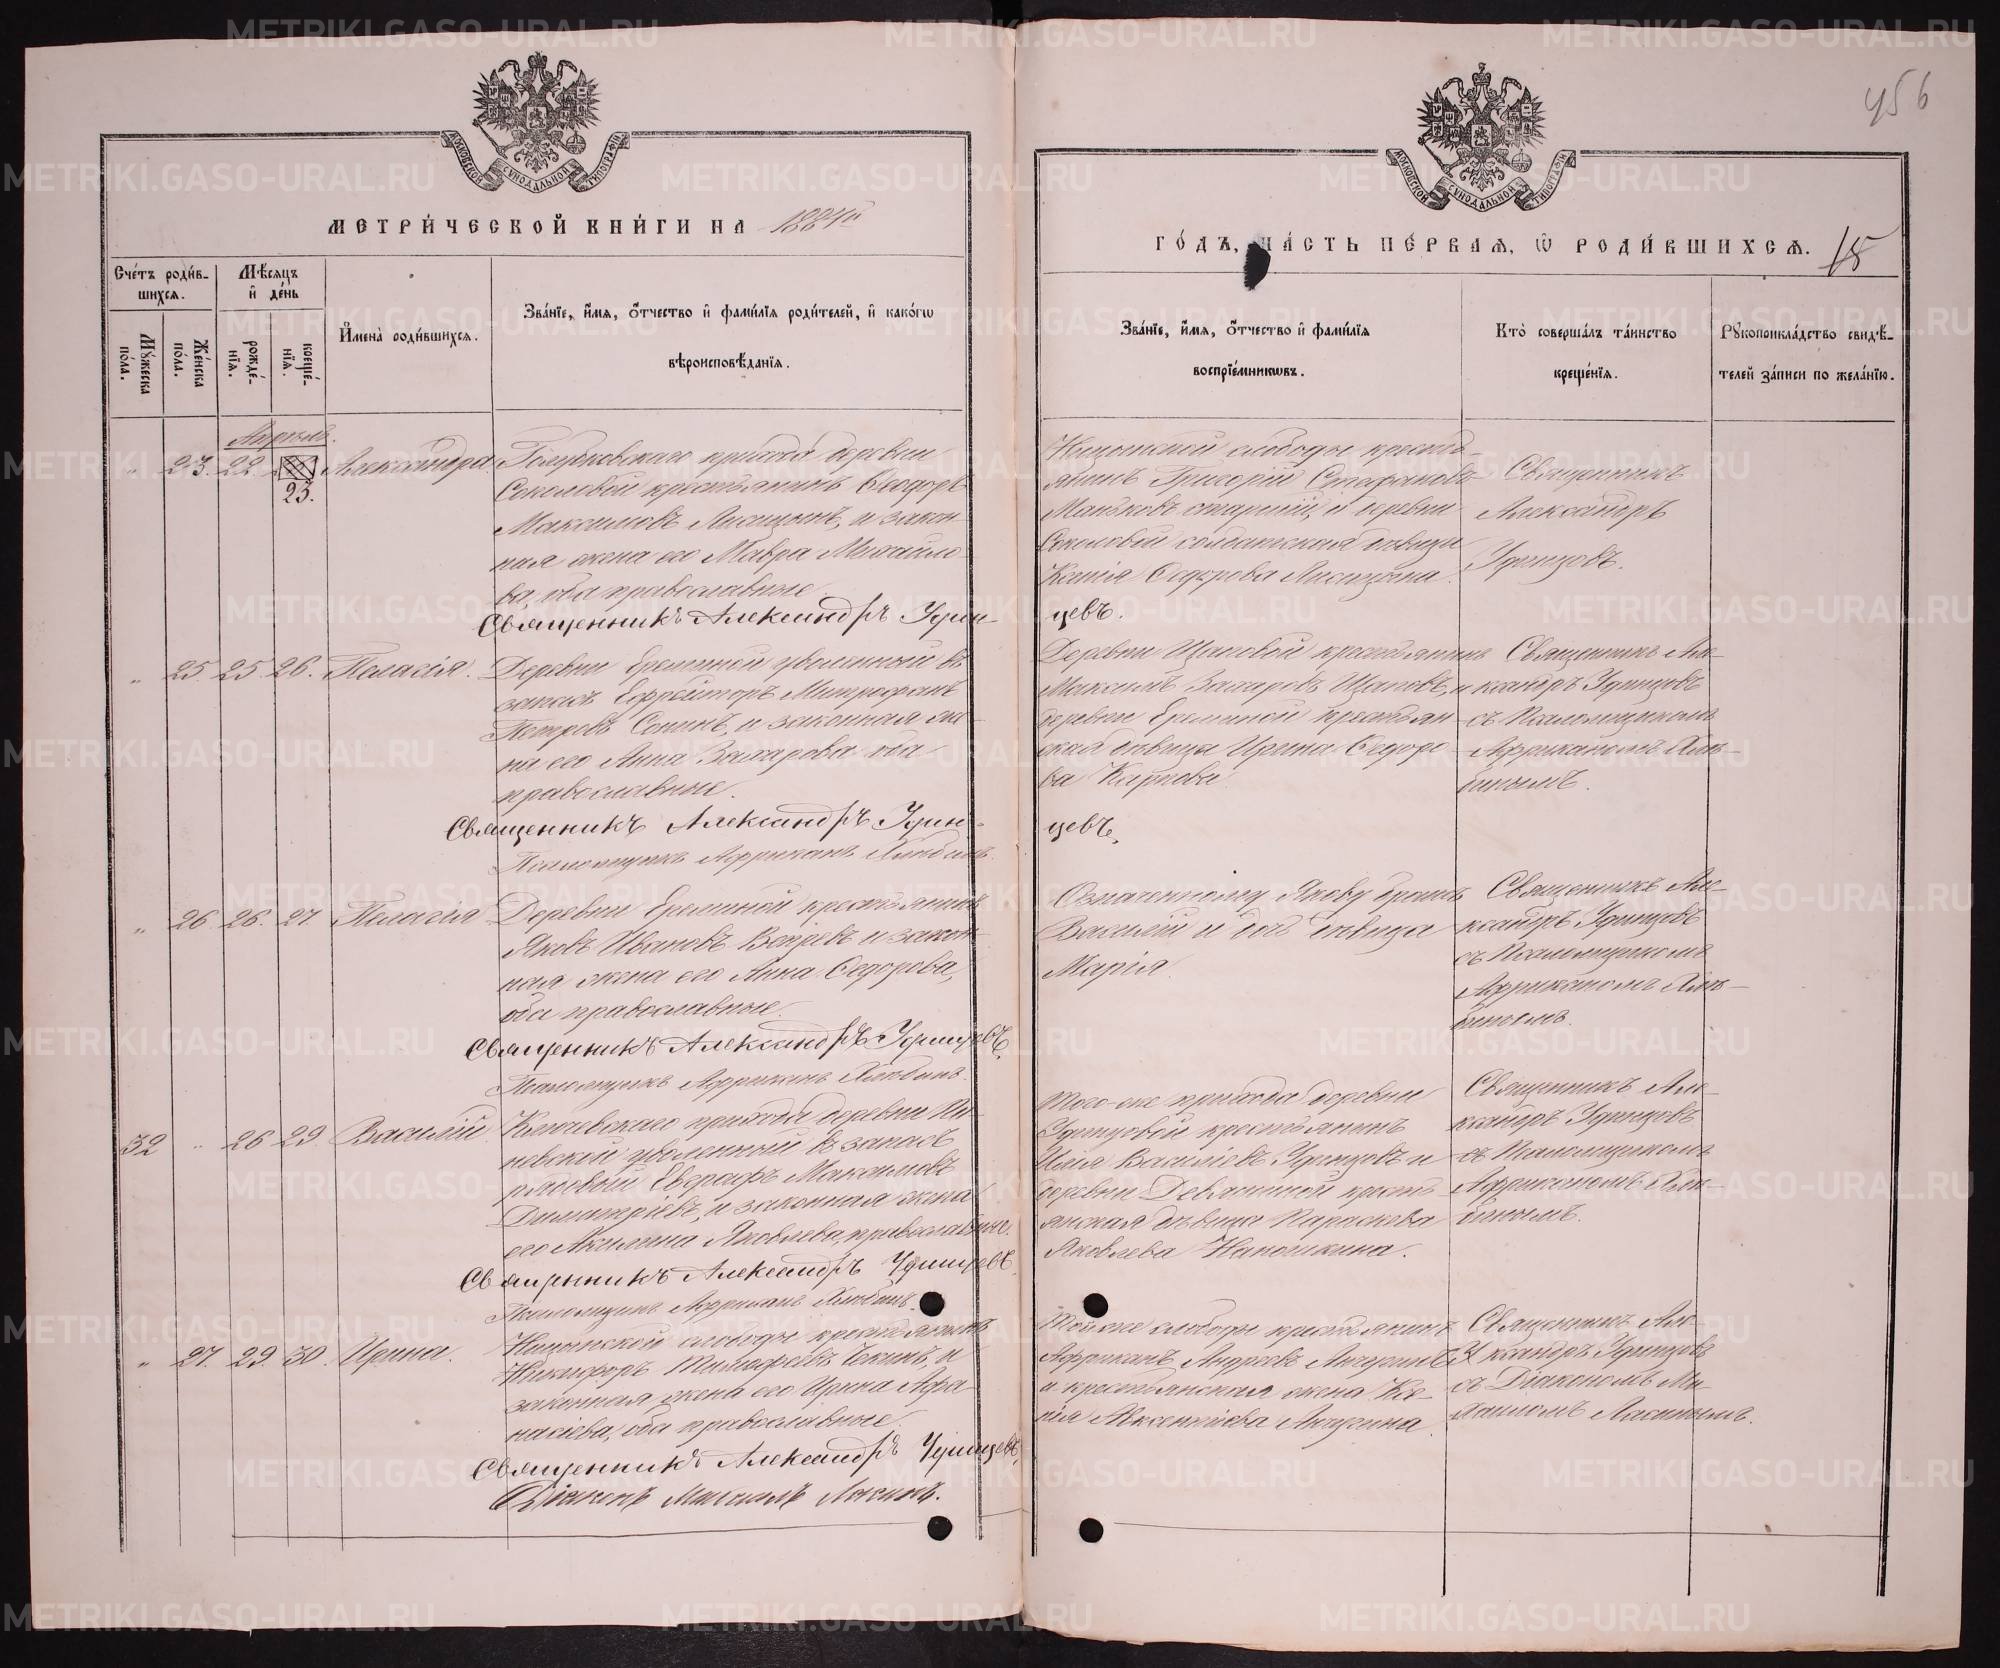 456
МОСКОВСКОЙ СУНОДАЛЬНОЙ ТИПОГРАФІИ
МОСКОВСКОЙ СУНОДАЛЬНОЙ ТИПОГРАФІИ
МЕТРИ́ЧЕСКОЙ КНИ́ГИ НА 1884й
ГО́ДЪ, ЧА́СТЬ ПЕ́РВАЯ, Ѿ РОДИ́ВШИХСѦ. 18
Сче́тъ роди́в-
шихсѧ.
Мꙋ́жеска по́ла.
Же́нска по́ла.
Мѣ́сѧцъ
и҆ де́нь
рожде́-
нїѧ.
креще́-
нїѧ.
И҆мена̀ роди́вшихсѧ.
Зва́нїе, и҆́мѧ, ѻ҆́тчество и҆ фами́лїѧ роди́телей, и҆ како́гѡ
вѣроисповѣ́данїѧ.
Зва́нїе, и҆́мѧ, ѻ҆́тчество и҆ фами́лїѧ
воспрїе́мникѡвъ.
Кто̀ соверша́лъ та́инство
креще́нїѧ.
Рꙋкоприкла́дство свидѣ́-
телей за́писи по жела́нїю.
Апрѣль.
" 23. 22. 23. Александра
крестьянинъ Ѳеодоръ
Максимовъ Лисицынъ, и закон-
ная жена его Мавра Михайло-
ва, оба православные
Священникъ Александръ Удин-
цевъ.
Ницынской слободы кресть-
янинъ Григорій Стефановъ
Маньковъ старшій, и деревни
Соколовой солдатская дѣвица
Ксенія Ѳедорова Лисицына.
Священникъ
Александръ
Удинцовъ.
" 25. 25. 26. Пелагія.
Деревни Ереминой уволенный въ
запасъ Ефрейторъ Митрофанъ
Петровъ Сопинъ, и законная же-
на его Анна Захарова оба
православные.
Священникъ Александръ Удин-
цевъ.
Псаломщикъ Африканъ Хлѣбинъ.
Максимъ Захаровъ Щаповъ, и
деревни Ереминой крестьян-
ская дѣвица Ирина Ѳедоро-
ва Карпова
Священникъ Але-
ксандръ Удинцовъ
съ Псаломщикомъ
Африканомъ Хлѣ-
бинымъ.
" 26. 26. 27. Пелагія
Деревни Ереминой крестьянинъ
Яковъ Ивановъ и закон-
ная жена его Анна Ѳедорова,
оба православные.
Священникъ Александръ Удинцевъ,
Псаломщикъ Африканъ Хлѣбинъ.
Означенному Якову братъ
Василій и дѣвица
Марія.
Священникъ Але-
ксандръ Удинцовъ
съ Псаломщикомъ
Африканомъ Хлѣ-
бинымъ.
32 " 26 29. Василій
Ключевскаго прихода деревни
уволенный въ запасъ
рядовый Евграфъ Максимовъ
Димитріевъ, и законная жена
его Акилина Яковлева, православные.
Священникъ Александръ Удинцевъ.
Псаломщикъ Африканъ Хлѣбинъ.
Того-же прихода деревни
Удинцовой крестьянинъ
Илія Василіевъ Удинцовъ и
деревни Девяшиной кресть-
янская дѣвица Параскева
Яковлева Напошкина.
Священникъ Але-
ксандръ Удинцовъ
съ Псаломщикомъ
Африканомъ Хлѣ-
бинымъ.
" 27. 29. 30. Ирина.
Ницынской слободы крестьянинъ
Никифоръ Тимофеевъ Чекинъ, и
законная жена его Ирина Афа-
насіева, оба православные.
Священникъ Александръ Удинцевъ,
Діаконъ Михаилъ Ласинъ.
Той-же слободы крестьянинъ
Африканъ Андреевъ
и крестьянская жена Ксе-
нія Авксентіева
Священникъ Але-
ксандръ Удинцовъ
съ Діакономъ Ми-
хаиломъ Ласинымъ.
METRIKI.GASO-URAL.RU